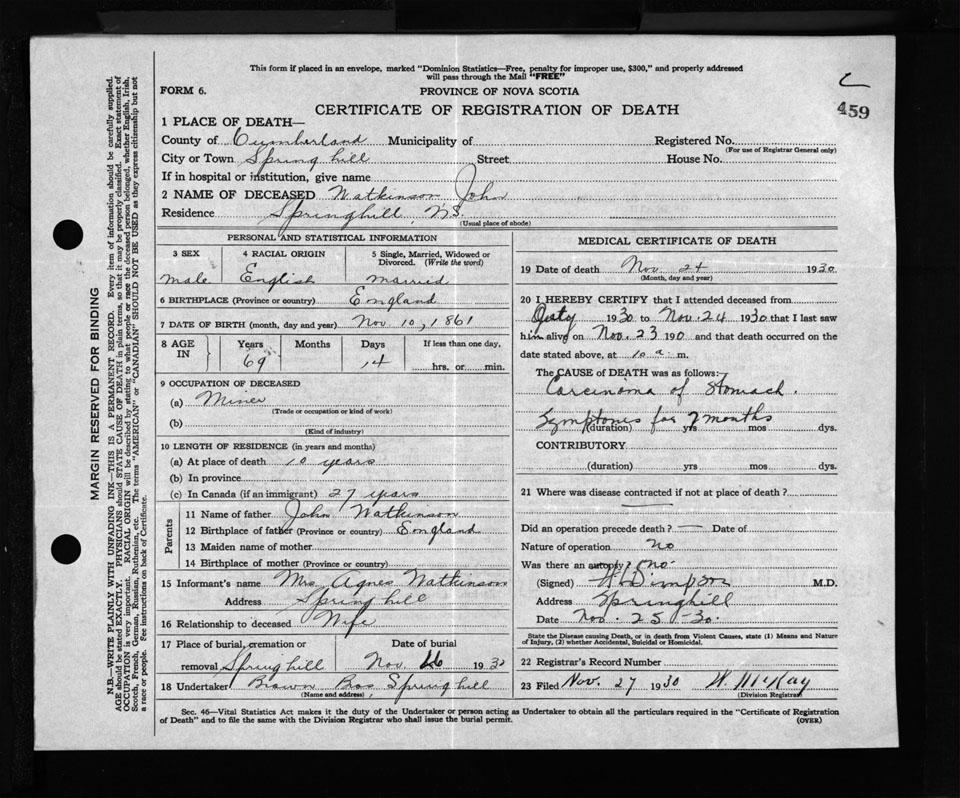 This form if placed in an envelope, marked "Dominion Statistics—Free, penalty for improper use, $300," and properly addressed
will pass through the Mail "FREE"
FORM 6.
PROVINCE OF NOVA SCOTIA
CERTIFICATE OF REGISTRATION OF DEATH
459
1 PLACE OF DEATH—
County of Cumberland Municipality of Registered No.
(For use of Registrar General only)
City or Town Spring hill Street House No.
If in hospital or institution, give name
2 NAME OF DECEASED Watkinson, John
Residence Springhill, N.S.
(Usual place of abode)
PERSONAL AND STATISTICAL INFORMATION
3 SEX 4 RACIAL ORIGIN 5 Single, Married, Widowed or
Divorced. (Write the word)
male English married
6 BIRTHPLACE (Province or country) England
7 DATE OF BIRTH (month, day and year) Nov. 10, 1861
8 AGE IN Years Months Days If less than one day,
69 14 hrs. or min.
9 OCCUPATION OF DECEASED
(a) Miner
(Trade or occupation or kind of work)
(b)
(Kind of industry)
10 LENGTH OF RESIDENCE (in years and months)
(a) At place of death 10 years
(b) In province
(c) In Canada (if an immigrant) 27 years
Parents
11 Name of father John Watkinson
12 Birthplace of father (Province or country) England
13 Maiden name of mother
14 Birthplace of mother (Province or country)
15 Informant's name Mrs. Agnes Watkinson
Address Spring hill
16 Relationship to deceased Wife
17 Place of burial, cremation or Date of burial
removal Spring hill Nov. 26 1930
18 Undertaker Brown Bros Spring hill
(Name and address)
MEDICAL CERTIFICATE OF DEATH
19 Date of death Nov. 24 1930
(Month, day and year)
20 I HEREBY CERTIFY that I attended deceased from
1930 to Nov. 24 1930 that I last saw
him alive on Nov. 23 190 and that death occurred on the
date stated above, at 10 a. m.
The CAUSE of DEATH was as follows:
Carcinoma of Stomach.
Symptoms for 7 months
(duration) yrs mos dys.
CONTRIBUTORY
(duration) yrs mos dys.
21 Where was disease contracted if not at place of death?
—
Did an operation precede death? — Date of
Nature of operation no
Was there an autopsy? no.
(Signed) M.D.
Address Springhill
Date Nov. 25-30.
State the Disease causing Death, or in death from Violent Causes, state (1) Means and Nature
of Injury, (2) whether Accidental, Suicidal or Homicidal.
22 Registrar's Record Number
23 Filed Nov. 27 1930 W. McKay
(Division Registrar)
Sec. 46—Vital Statistics Act makes it the duty of the Undertaker or person acting as Undertaker to obtain all the particulars required in the "Certificate of Registration
of Death" and to file the same with the Division Registrar who shall issue the burial permit.
(OVER)
MARGIN RESERVED FOR BINDING
N.B.—WRITE PLAINLY WITH UNFADING INK—THIS IS A PERMANENT RECORD. Every item of information should be carefully supplied.
AGE should be stated EXACTLY. PHYSICIANS should STATE CAUSE OF DEATH in plain terms, so that it may be properly classified. Exact statement of
OCCUPATION is very important. RACIAL ORIGIN will be described by stating to what people or race the deceased person belonged, whether English, Irish,
Scotch, French, German, Russian, Ruthenian, etc. The terms "AMERICAN" or "CANADIAN" SHOULD NOT BE USED as they express citizenship but not
a race or people. See instructions on back of Certificate.